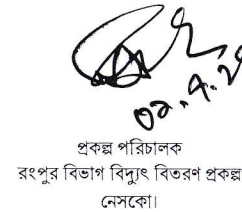 প্রকল্প পরিচালক
রংপুর বিভাগ বিদ্যুৎ বিতরণ প্রকল্প
নেসকো।